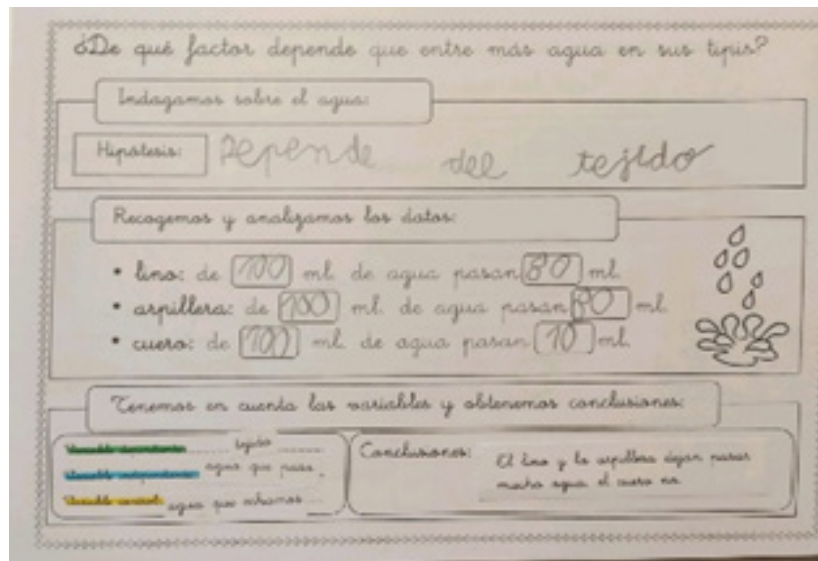 ¿De qué factor depende que entre más agua en sus tipis?
Indagamos sobre el agua:
Hipótesis: Depende del tejido
Recogemos y analizamos los datos:
• lino: de 100 ml. de agua pasan 80 ml.
• arpillera: de 100 ml. de agua pasan 80 ml.
• cuero: de 100 ml. de agua pasan 10 ml.
Tenemos en cuenta las variables y obtenemos conclusiones:
Variable dependiente: tejido
Variable independiente: agua que pasa.
Variable control: agua que echamos
Conclusiones: El lino y la arpillera dejan pasar
mucha agua el cuero no.